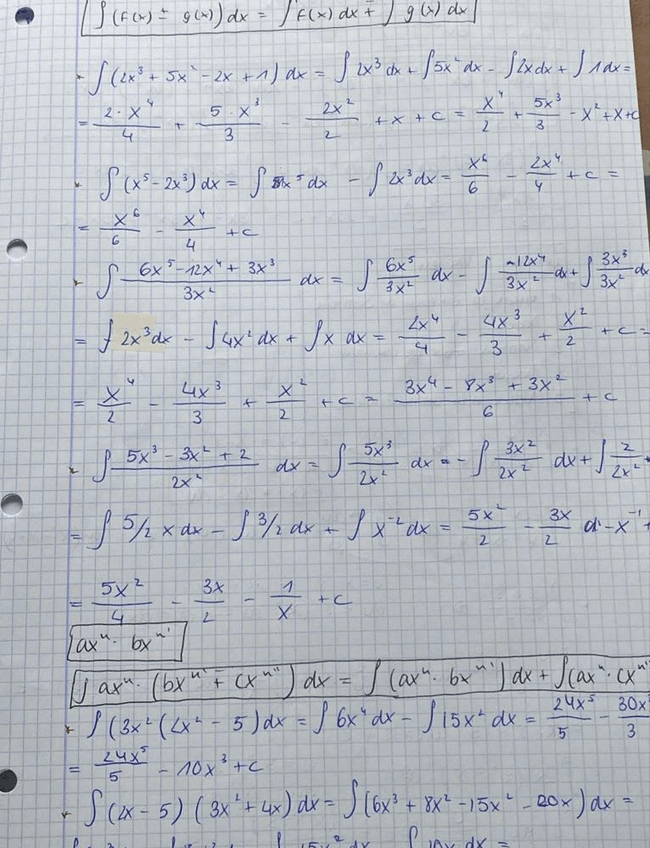 ∫(f(x) ± g(x)) dx = ∫ f(x) dx ± ∫ g(x) dx
∫(2x³ + 5x² - 2x + 1) dx = ∫ 2x³ dx + ∫5x² dx - ∫2x dx + ∫ 1 dx =
= 2·x⁴/4 + 5·x³/3 - 2x²/2 + x + c = x⁴/2 + 5x³/3 - x² + x + c
∫(x⁵ - 2x³) dx = ∫ x⁵ dx - ∫ 2x³ dx = x⁶/6 - 2x⁴/4 + c =
= x⁶/6 - x⁴/4 + c
∫ 6x⁵ - 12x⁴ + 3x³/3x² dx = ∫ 6x⁵/3x² dx - ∫ -12x⁴/3x² dx + ∫ 3x³/3x² dx
= ∫ 2x³ dx - ∫ 4x² dx + ∫ x dx = 2x⁴/4 - 4x³/3 + x²/2 + c =
= x⁴/2 - 4x³/3 + x²/2 + c = 3x⁴ - 8x³ + 3x²/6 + c
∫ 5x³ - 3x² + 2/2x² dx = ∫ 5x³/2x² dx = - ∫ 3x²/2x² dx + ∫ 2/2x²
= ∫ 5/2 x dx - ∫ 3/2 dx + ∫ x⁻² dx = 5x²/2 - 3x/2 - x⁻¹ +
= 5x²/4 - 3x/2 - 1/x + c
axⁿ · bxⁿ'
∫ axⁿ · (bxⁿ' + cxⁿ'') dx = ∫ (axⁿ · bxⁿ') dx + ∫(axⁿ · cxⁿ''
∫(3x² (2x² - 5) dx = ∫ 6x⁴ dx - ∫ 15x² dx = 24x⁵/5 - 30x³/3
= 24x⁵/5 - 10x³ + c
∫ (2x - 5) (3x² + 4x) dx = ∫(6x³ + 8x² - 15x² - 20x) dx =